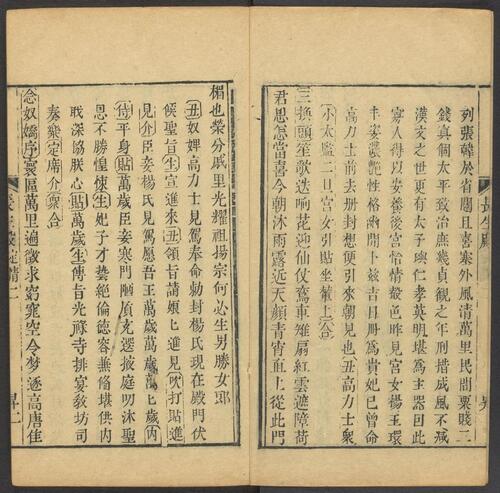 列張韓於省闥且喜塞外風清萬里民間粟賤三
錢真個太平致治庶幾貞觀之年刑措成風不減
漢文之世更有太子璵仁孝英明堪為主器因此
寡人得以安養後宮寄情聲色昨見宮女楊玉環
丰姿穠艷性格幽閒卜茲吉日冊為貴妃已曾命
高力士前去册封想便引來朝見也丑高力士眾
小太監二旦宮女引貼坐輦上合
三換頭笙歌迭响花迎仙仗鸞車雉扇紅雲遮障荷
君恩怎當喜今朝沐雨露近天顏青霄直上從此門
楣也榮分戚里光耀祖揚宗何必生男勝女郎
丑奴婢高力士見駕奉命勅封楊氏現在殿門伏
候聖旨生宣進來丑領旨請娘匕進見吹打貼進
見介臣妾楊氏見駕愿吾王萬歲萬歲萬匕歲內
侍平身貼萬歲臣妾寒門陋質充選掖庭叨沐聖
恩不勝惶悚生妃子才藝絕倫德容兼備堪供內
職深協朕心貼萬歲生傳旨光祿寺排宴教坊司
奏樂定席介衆合
念奴嬌序寰區萬里遍徵求窈窕空令夢逐高唐佳